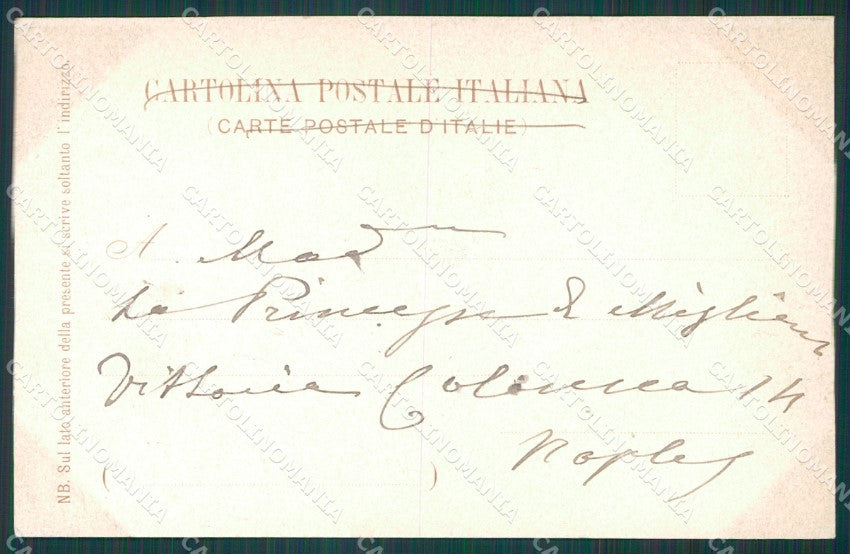 CARTOLINA POSTALE ITALIANA
(CARTE POSTALE D'ITALIE)
NB. Sul lato anteriore della presente si scrive soltanto l'indirizzo.
A. Mad
La Princesse D Migliano
Vittoria Colonna 14
Naples
( )
CARTOLINOMANIA